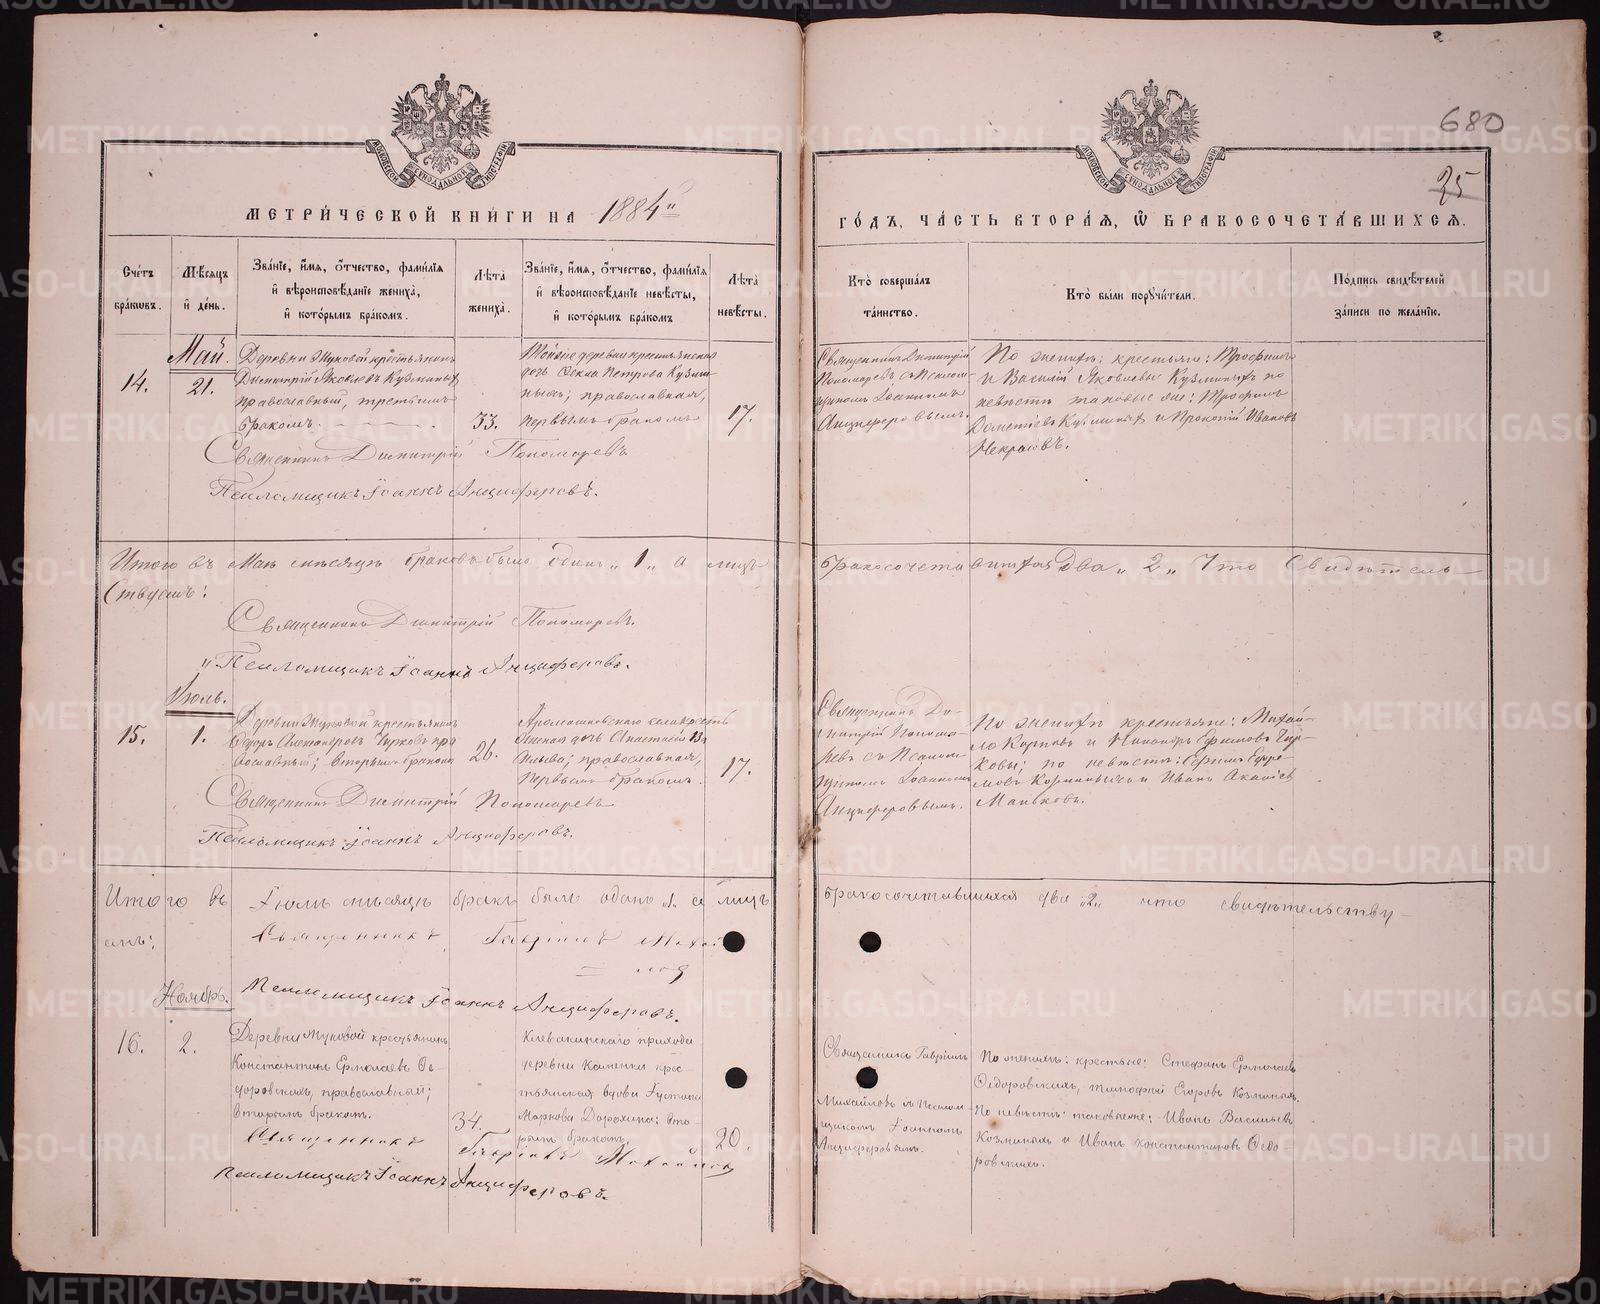 680
25
МЕТРИЧЕСКОЙ КНИГИ НА 1884й
ГОДЪ, ЧАСТЬ ВТОРАЯ, Ѡ БРАКОСОЧЕТАВШИХСЯ.
Счетъ браковъ.
Мѣсяцъ и день.
Званіе, имя, отчество, фамилія
и вѣроисповѣданіе жениха,
и которымъ бракомъ.
Лѣта жениха.
Званіе, имя, отчество, фамилія
и вѣроисповѣданіе невѣсты,
и которымъ бракомъ
Лѣта невѣсты.
Кто совершалъ таинство.
Кто были поручители.
Подпись свидѣтелей
записи по желанію.
Май.
14.
21.
Деревни Жуковой крестьянинъ
Димитрій Яковлевъ Кузминыхъ
православный, третьимъ
бракомъ.
33.
Тойже деревни крестьянская
дочь Фекла Петрова Кузми-
ныхъ; православная,
первымъ бракомъ
17.
Священникъ Димитрій
Пономаревъ съ Псалом-
щикомъ Іоанномъ
Анциферовымъ.
По женихѣ: крестьяне: Трофимъ
и Василій Яковлевы Кузминыхъ по
невѣстѣ таковые же: Трофимъ
Дометіевъ Кузминыхъ и Прокопій Ивановъ
Некрасовъ.
Священникъ Димитрій Пономаревъ
Псаломщикъ Іоаннъ Анциферовъ.
Итого въ Маѣ мѣсяцѣ браковъ было одинъ „1„ а лицъ
бракосочетавшихся Два „2„ Что Свидѣтель
Ствуемъ:
Священникъ Димитрій Пономаревъ.
Псаломщикъ Іоаннъ Анциферовъ.
Іюль.
15.
1.
Деревни Жуковой крестьянинъ
Ѳедоръ Александровъ Чурковъ пра
вославный; вторымъ бракомъ
26.
Арамашковскаго села кресть
янская дочь Анастасія
православная,
первымъ бракомъ.
17.
Священникъ Ди-
митрій Понома-
ревъ съ Псалом-
щикомъ Іоанномъ
Анциферовымъ.
По женихѣ крестьяне: Михай-
ло Карповъ и Никаноръ Ефимовъ Чур-
ковы; по невѣстѣ: Ефимъ Ефре-
мовъ и Иванъ
Маньковъ.
Священникъ Димитрій Пономаревъ
Псаломщикъ Іоаннъ Анциферовъ.
Итого въ Іюлѣ мѣсяцѣ бракъ былъ одинъ „1„ а лицъ
бракосочетавшихся два „2„ что свидѣтельству-
емъ:
Священникъ Гавріилъ Михай
ловъ
Псаломщикъ Іоаннъ Анциферовъ.
Ноябрь.
16.
2.
Деревни Жуковой крестьянинъ
Константинъ Ермолаевъ Ѳе-
доровскихъ, православный;
вторымъ бракомъ.
34.
Клевакинскаго прихода
деревни Каменки крес-
тьянская вдова Іустина
Маркова Дорохина; вто-
рымъ бракомъ.
20.
Священникъ Гавріилъ
Михайловъ съ Псалом-
щикомъ Іоанномъ
Анциферовымъ.
По женихѣ: крестьяне: Стефанъ Ермолаевъ
Ѳедоровскихъ, Тимофей Егоровъ Козминыхъ.
По невѣстѣ: таковые же: Иванъ Васильевъ
Козминыхъ и Иванъ Константиновъ Ѳедо
ровскихъ.
Священникъ Гавріилъ Михайловъ
Псаломщикъ Іоаннъ Анциферовъ.
METRIKI.GASO-URAL.RU